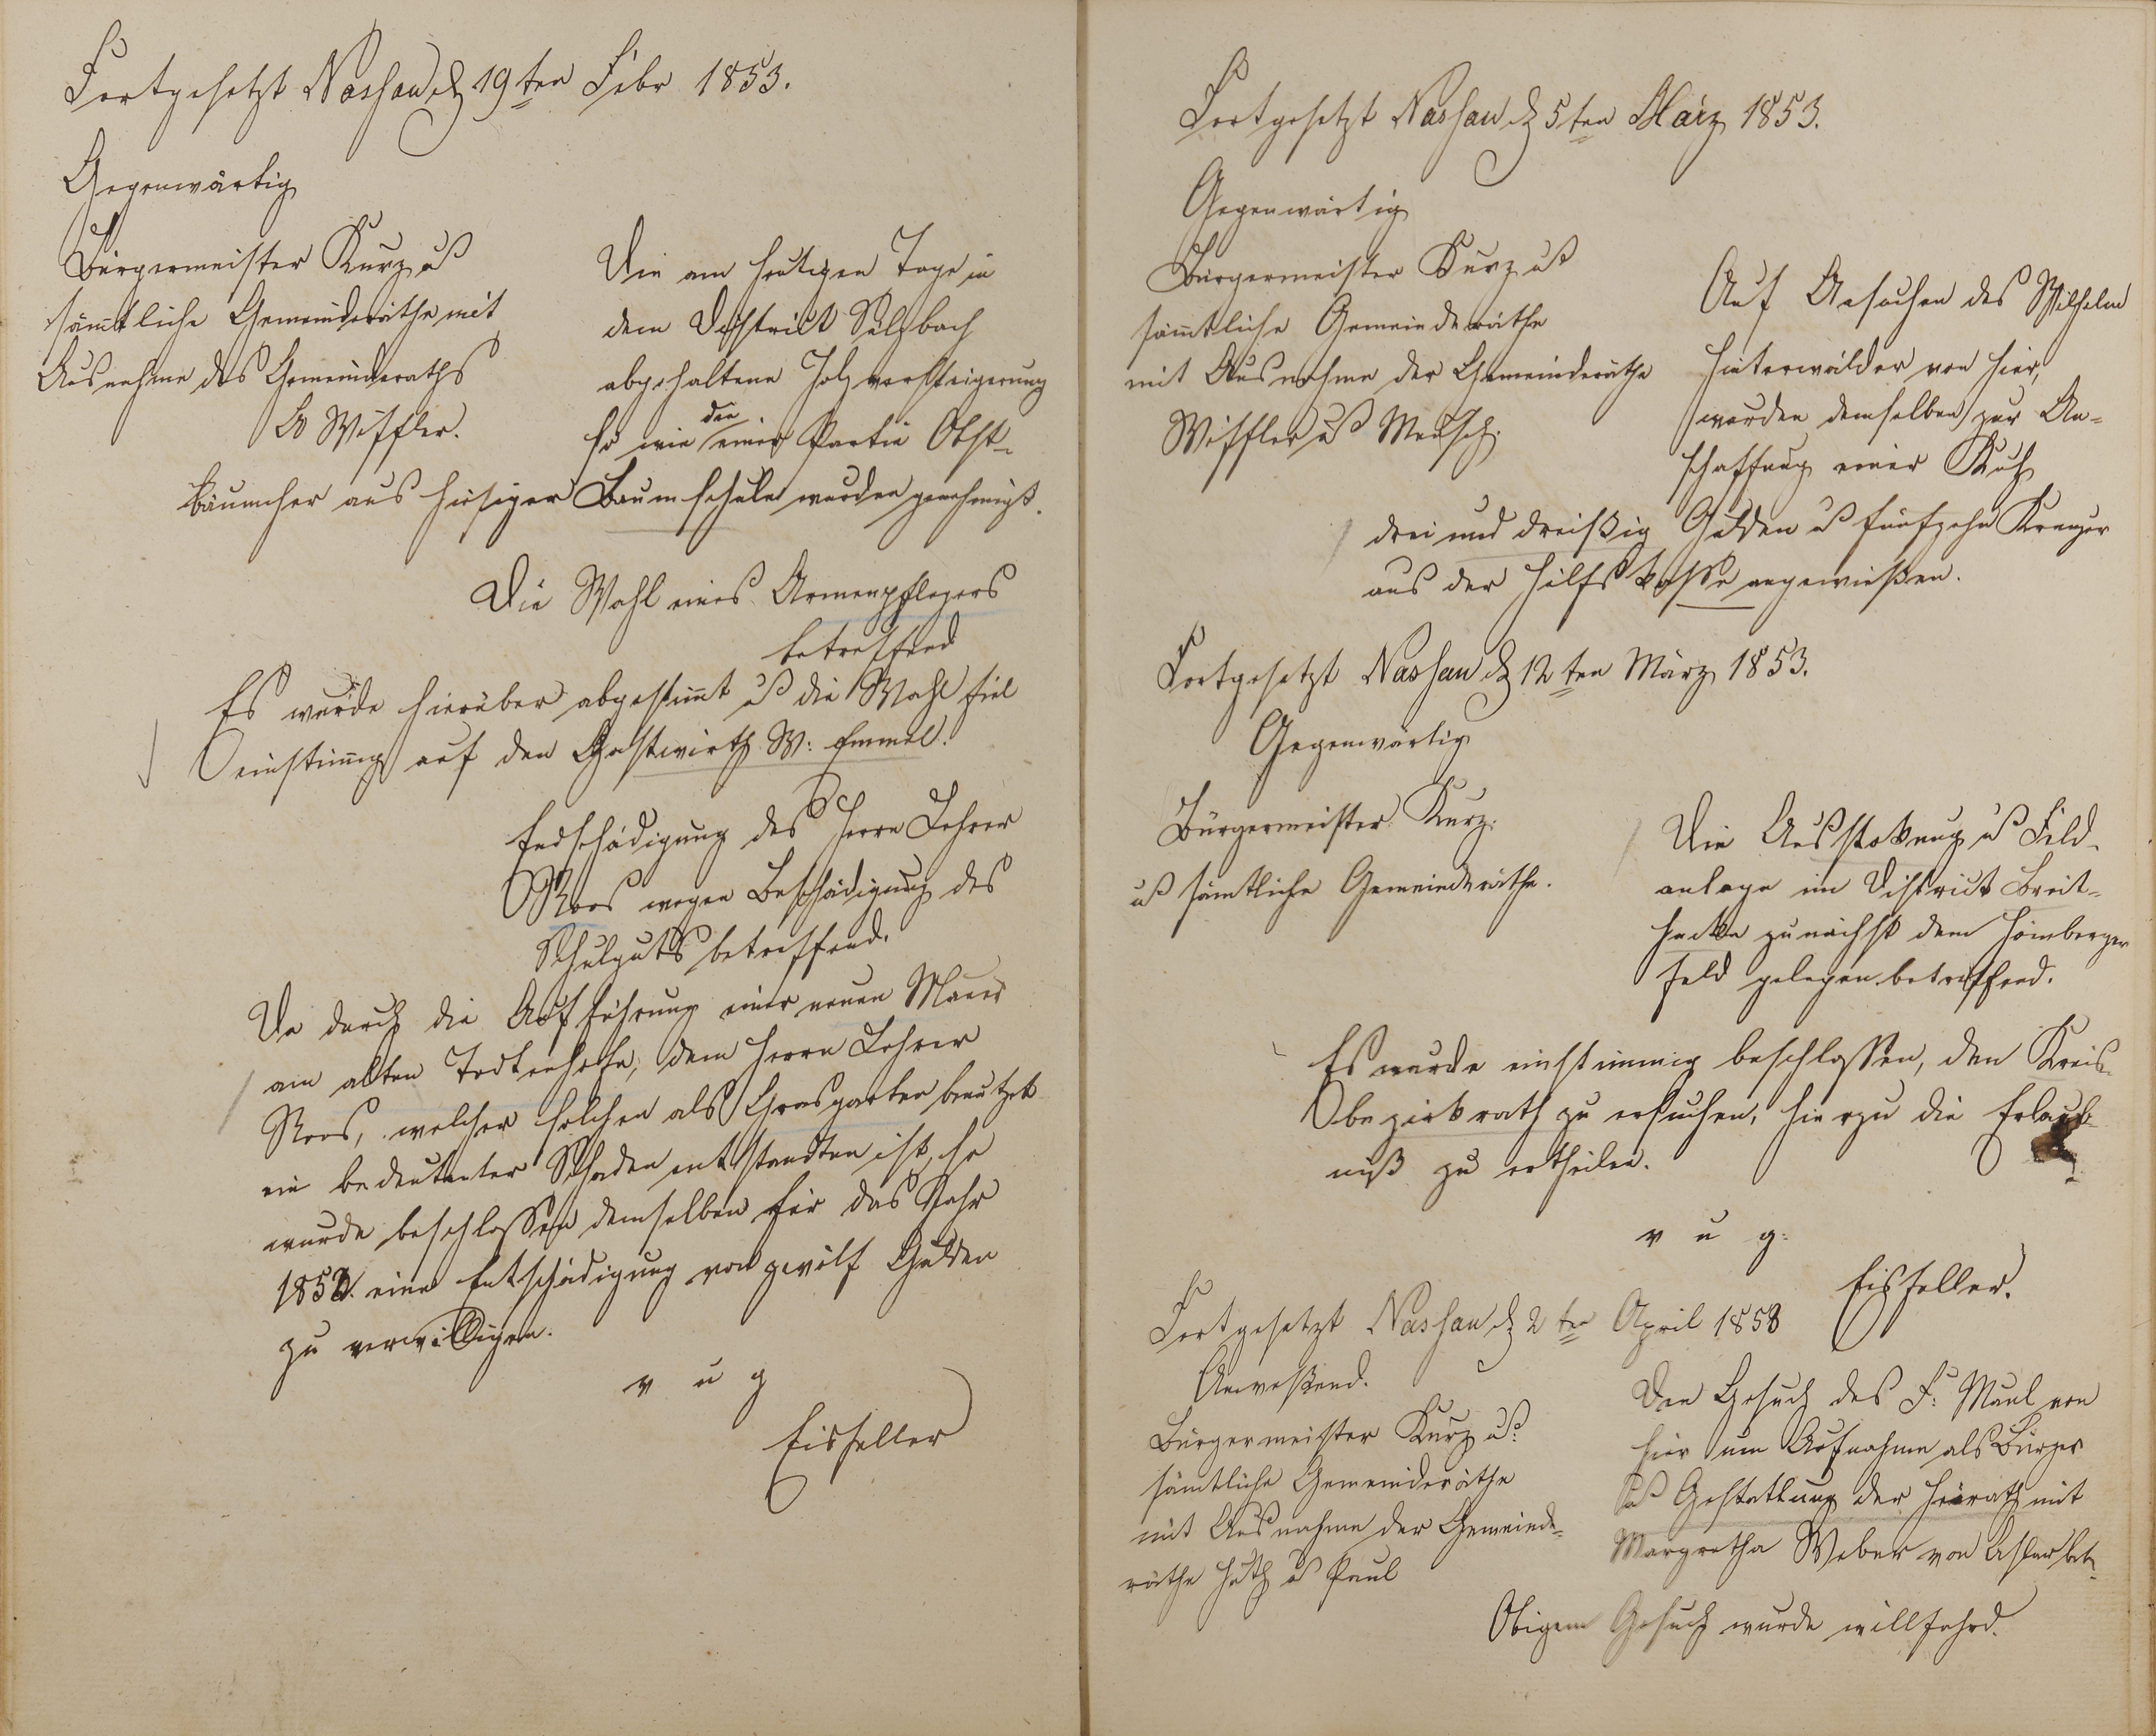 Fortgesetzt Nassau d 19ten Febr 1853.
Gegenwärtig
Bürgermeister Kurz uß
sämtliche Gemeinderäthe mit
Ausnahme des Gemeinderaths
Wiffler.
Die am heutigen Tage in
dem District Sulzbach
abgehaltene Holzversteigerung
so wie den einer Partie Obst-
bäumcher aus hiesiger Baumschule wurden genehmigt.
Die Wahl eines Armenpflegers
betreffend
Es wurde hierüber abgestimt uß die Wahl fiel
einstimig auf den Gastwirth W: Emmel.
Endschädigung des Herrn Lehrer
Roos wegen Beschädigung des
Schulguts betreffend.
Da durch die Aufführung einer neuen Mauer
am alten Todtenhofe, dem Herrn Lehrer
Roos, welcher solchen als Grasgarten benutzet
ein bedeutenter Schaden entstandten ist, so
wurde beschlossen demselben für das Jahr
1852. eine Entschädigung von zwölf Gulden
zu verwilligen.
v u g
Eisfeller
Fortgesetzt Nassau d 5ten März 1853.
Gegenwärtig
Bürgermeister Kurz uß
sämtliche Gemeinderäthe
mit Ausnahme der Gemeinderäthe
Wiffler uß Mensch.
Auf Ansuchen des Wilhelm
Hinterwälder von hier,
wurden demselben zur An-
schaffung einer Kuh
drei und dreißig Gulden uß fünfzehn Kreuzer
aus der Hilfskasse angewießen.
Fortgesetzt Nassau d 12ten März 1853.
Gegenwärtig
Bürgermeister Kurz.
uß sämtliche Gemeinderäthe.
Die Ausstokung uß Feld-
anlage im District Breit-
hecke zunächst dem Hömberger
Feld gelegen betreffend.
Es wurde einstimmig beschlossen, den Kreis-
bezirkrath zu ersuchen, hierzu die Erlaub-
niß zu ertheilen.
v u g.
Eisfeller.
Fortgesetzt Nassau d 2ten April 1853
Anweßend.
Bürgermeister Kurz uß
sämtliche Gemeinderäthe
mit Ausnahme der Gemeinde-
räthe Huth uß Paul
Den Gesuch des F: Maul von
hier um Aufnahme als Bürger
uß Gestattung der Heirath mit
Margretha Weber von betr.
Obigem Gesuch wurde willfahrd.